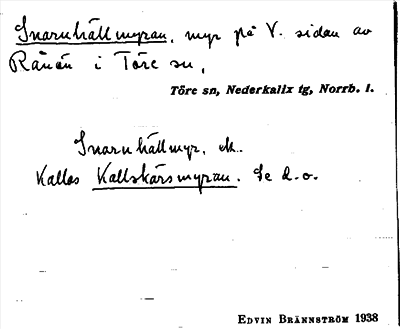 Snaruhällmyran, myr på V. sidan av
Rånån i Töre sn,
Töre sn, Nederkalix tg, Norrb. l.
Snaruhällmyr, ek.
Kallas Kallskärsmyran. Se d.o.
EDVIN BRÄNNSTRÖM 1938